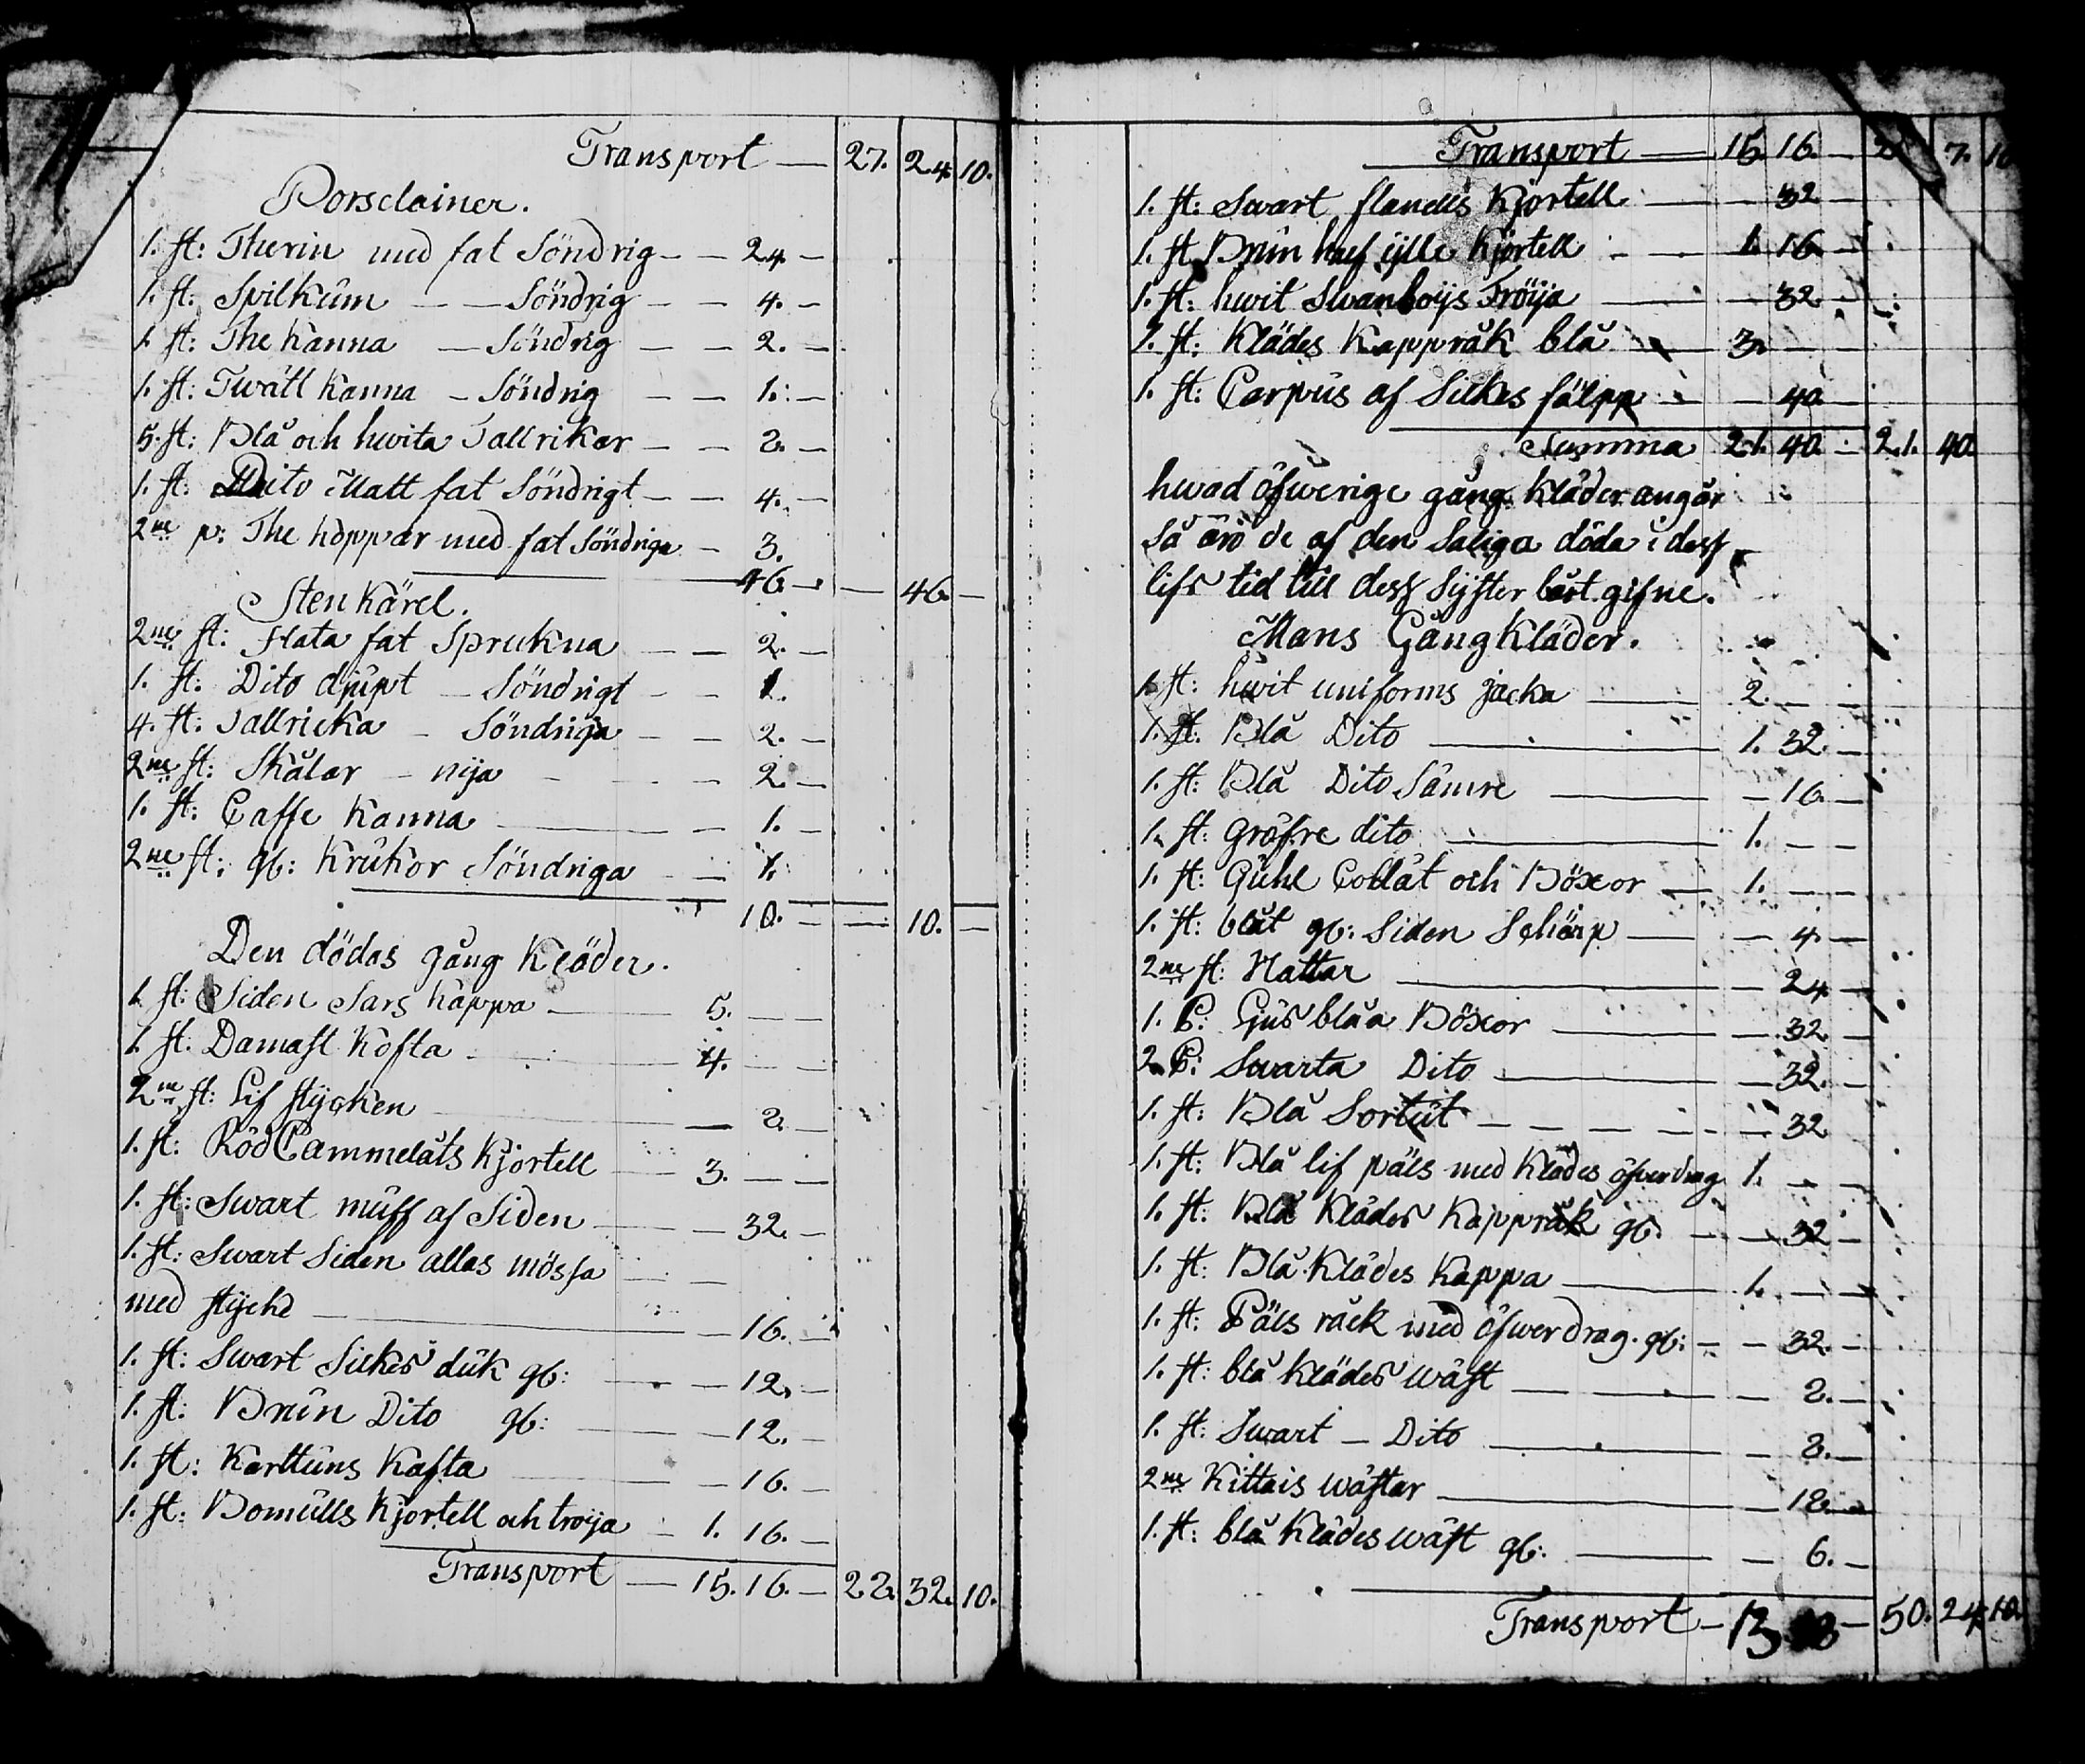 Transport — 27. 24. 10.
Porsclainer.
1. st: Therin med fat Söndrig — — 24. —
1. st: Spilkum — — Söndrig — — 4. —
1. st: The Kanna — Söndrig — — 2. —
1. st: Twätt Kanna — Söndrig — — 1. —
5. st: Blå och hwita Tallrikar — — 8. —
1. st: Dito Matt fat Söndrigt — — 4. —
2ne p: The koppar med fat Söndriga — 3.
46. — — 46. —
Sten Kärel.
2ne st: flata fat Spruckna — — 2. —
1. st: Dito djupt — Söndrigt — — 1.
4. st: Tallricka — Söndriga — — 2. —
2ne st: Skålar — nija — — 2. —
1. st: Caffe Kanna — — 1. —
2ne st: gb: Krukor Söndriga — 1.
10. — — 10. —
Den dödas gång Kläder.
1. st: Siden Sars Kappa — 5. — —
1. st: Damast Kofta — 4. — —
2ne st: Lif stycken — 8. —
1. st: Röd Cammelåts Kjortell — 3. — —
1. st: Swart muff af Siden — — 32. —
1. st: Swart Siden atlas mössa — —
med stycke — — 16. —
1. st: Swart Silkes duk gb: — — 12. —
1. st: Brun Dito gb: — — 12. —
1. st: Karttuns Kafta — — 16. —
1. st: Bomulls Kjortell och tröija — 1. 16. —
Transport — 15. 16. — 28. 32. 10.
Transport — 15. 16. — 7. 10
1. st: Swart flanells Kjortell — — 32
1. st Brun half ÿlle Kjortell — — 1. 16. —
1. st: hwit Swanboijs Tröija — — 32. —
1. st: Klädes Kappråk blå — 3. — —
1. st: Carpus af Silkes fälpp — — 40 —
Summa 21. 40. — 21. 40.
hwad öfwerige gång Kläder angår
så äro de af den Saliga döda i dess
lifs tid till dess Syster bort gifne.
Mans Gång Kläder.
1. st: hwit uniforms jacka — 2. — —
1. st: Blå Dito — 1. 32. —
1. st: Blå Dito Sämre — — 16. —
1. st: gröfre dito — 1. — —
1. st: Guhl Collåt och Böxor — 1. — —
1. st: blåt gb: Siden Schärp — — 4. —
2ne st: Hattar — — 24 —
1. P: Ljus blåa Böxor — — 32. —
2. P: Swarta Dito — — 32. —
1. st: Blå Sortut — — — — 32
1. st: Blå lif päls med Klädes öfverdrag 1. — —
1. st: Blå Klädes Kappråk gb. — — 32 —
1. st: Blå Klädes Kappa — 1. — —
1. st: Päls råck med öfwerdrag. gb: — — 32. —
1. st: blå Klädes wäst — — — 8. —
1. st: Swart — Dito — — 8. —
2ne Kittais wästar — — 18. —
1. st: blå Klädes wäst gb: — — 6. —
Transport — 13 — 50. 24. 10.